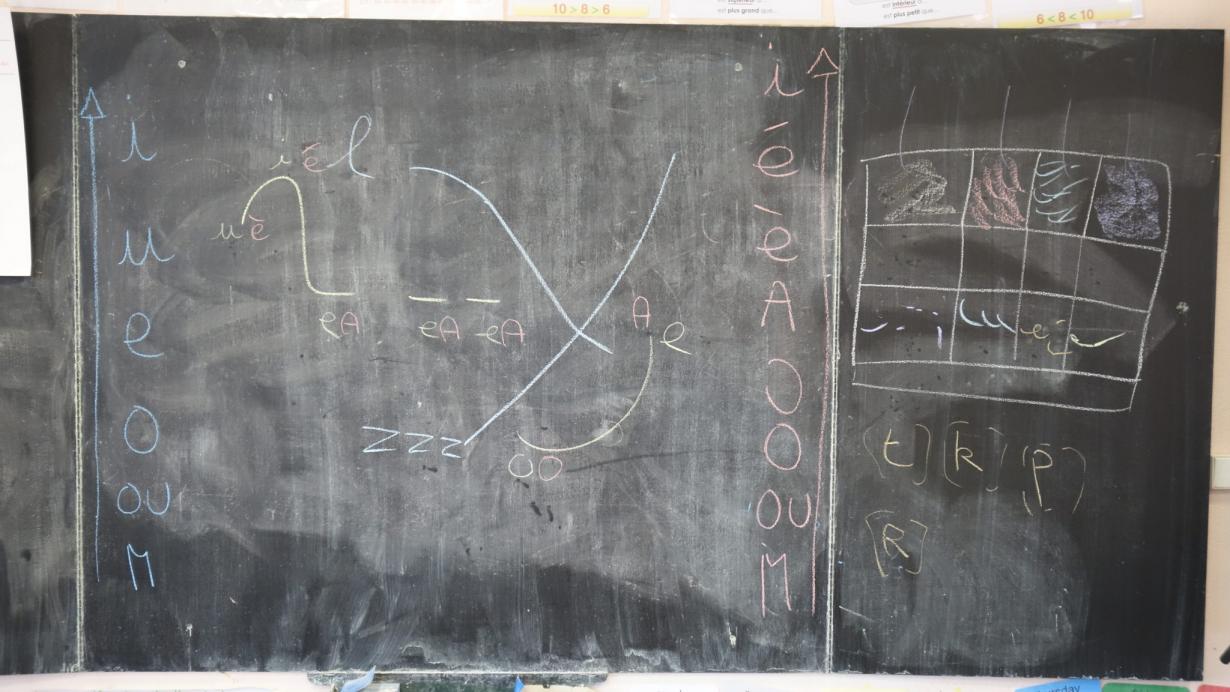 10 > 8 > 6
est plus grand que...
est plus petit que...
6 < 8 < 10
i
u
e
O
OU
M
i è l
u è
e A
e A e A
A e
z z z
O O
i
é
è
A
O
O
OU
M
[t] [k] [p]
[R]